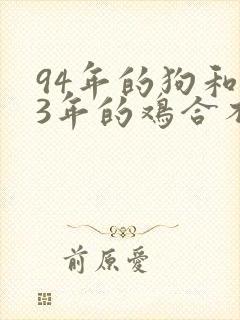 94年的狗和
3年的鸡合
前原愛